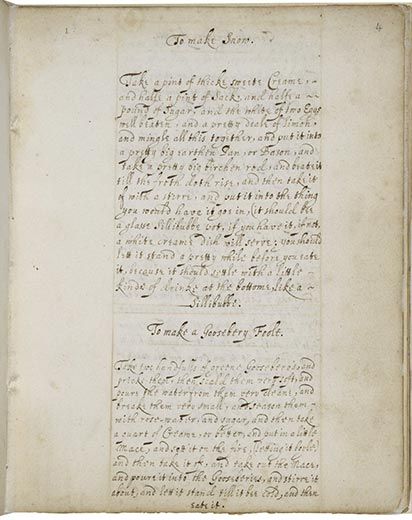 1
4
To make Snow.
Take a pint of thicke sweete Creame,
and halfe a pint of Sack, and halfe a
pound of Sugar, and the white of two Eggs
well beaten, and a pretty deale of Limon,
and mingle all this together, and put it into
a pretty big earthen Pan, or Bason, and
take a pretty big birchen rod, and beate it
till the froth doth rise, and then take it
of with a sticke, and put it into the thing
you would have it goe in, (it should be
a glass Sillibube pot, if you have it, if not,
a white creame Dish will serve, you should
lett it stand a pretty while before you eate
it, because it should settle with a little
kinde of drinke at the bottome like a
Sillibube.
To make a Goosebery Foole.
Take two handfulls of greene Gooseberes, and
pricke them, then scald them very soft, and
poure the water from them very cleane, and
breake them very small, and season them
with rose-water, and sugar, and then take
a quart of Creame, or better, and put in a little
Mace, and sett it on the fire, (letting it boyle)
and then take it of, and take out the Mace,
and poure it into the Gooseberies, and stirre it
about, and lett it stand till it bee cold, and then
eate it.